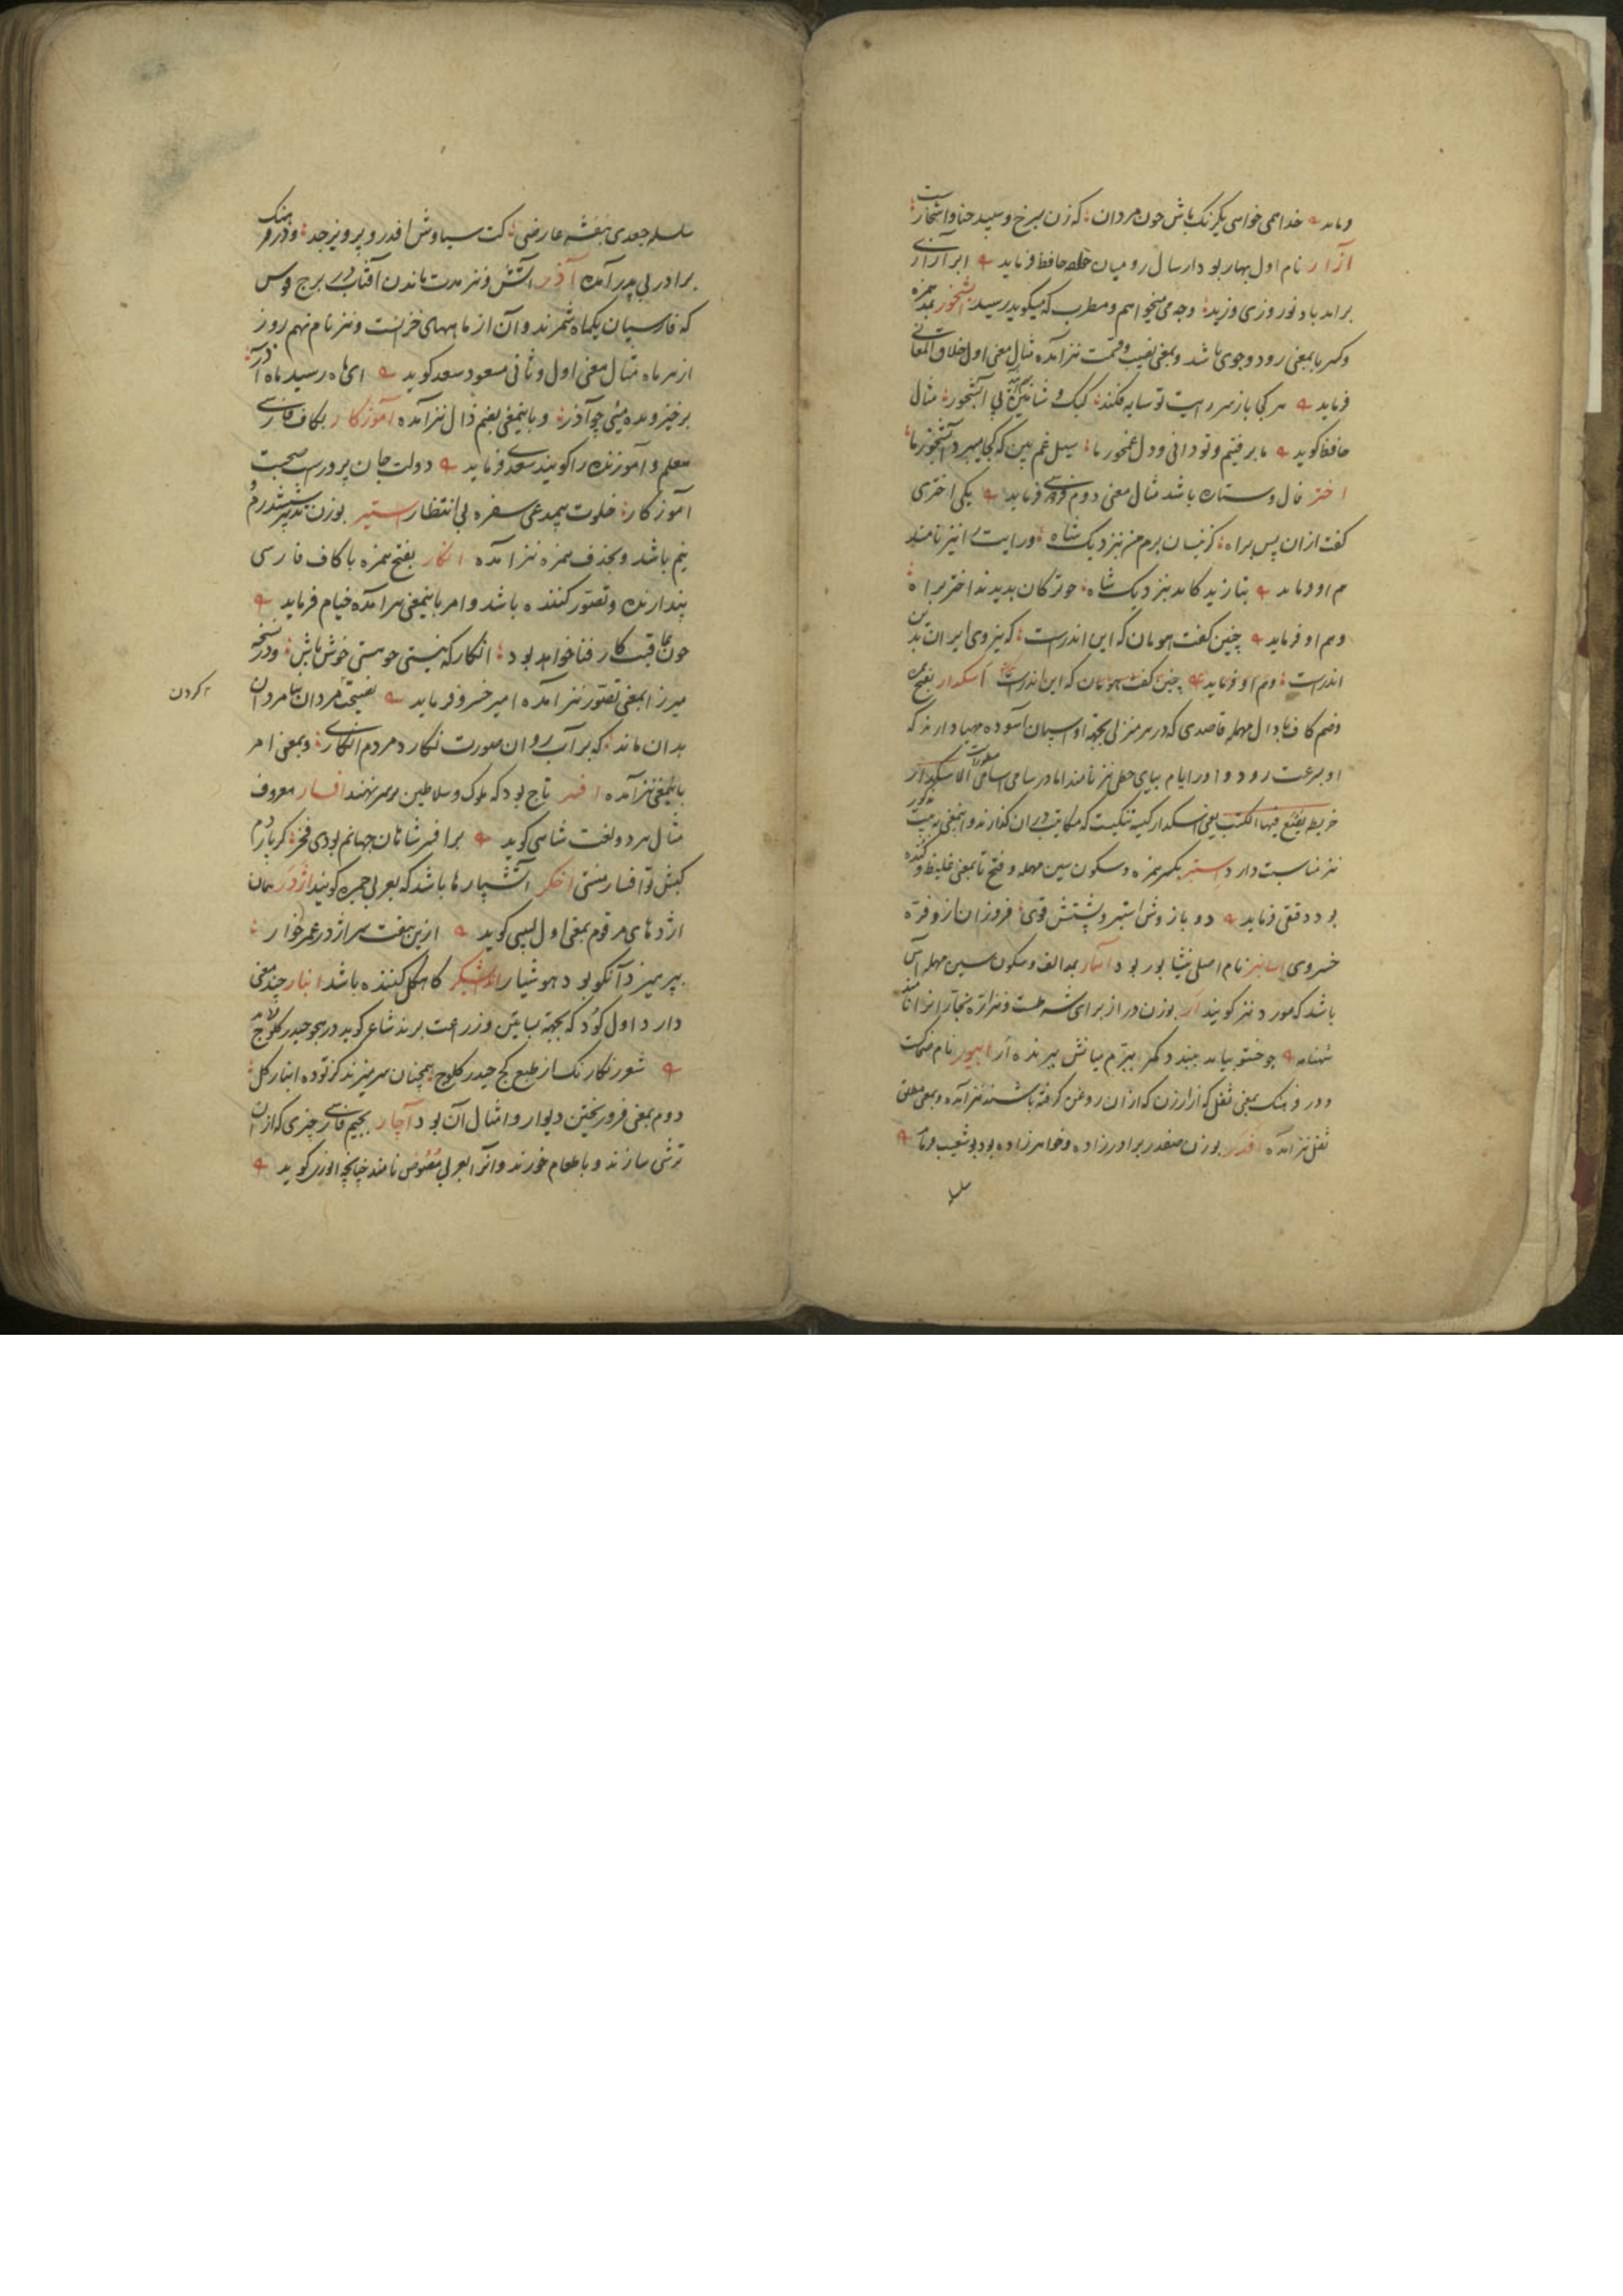 فرماید خدا همی خواهی یکرنک باش چون مردان که زن بسرخ و سپید حنا و اشخارست
آزار نام اول بهار بود از سال رومیان خواجه حافظ فرماید ابر آزاری
برامد باد نوروزی وزید وجه می میخواهم و مطرب که میکوید رسید آبشخور بمد همزه
و کسر با بمعنی رود و جوی باشد و بمعنی نصیب و قسمت نیز آمده مثال معنی اول خلاق المعانی
فرماید هر کجا باز سر رایت تو سایه فکند کبک و شاهین بی آبشخور مثال
حافظ کوید ما برفتیم و تو دانی و دل غمخور ما سیل غم بین که کجا میبرد آبشخور ما
اختر فال و ستاره باشد مثال معنی دوم فردوسی فرماید یکی اختری
کفت ازان پس براه کزنسان برم من نزدیک شاه و رایت را نیز نامند
هم او فرماید بتازید کامد بنزدیک شاه چو ترکان بدیدند اختر براه
و هم او فرماید چنین کفت هومان که این اندرست که نیروی ایران بدین
اندرست و هم او فرماید چنین کفت هومان که این اندرست اسکدار بفتح
و ضم کاف با دال مهمله قاصدی که در هر منزلی بجهة او اسپان آسوده مهیا دارند که
او بسرعت رود و اورا یام و پیای نیز نامند اما در سامی الاسامی الاسکدار
خریطه یوضع فیها الکتب یعنی اسکدار کیسه تنکیست که مکاتیب دران کذارند و اینمعنی
نیز مناسبت دارد ستبر بکسر همزه و سکون سین مهمله و فتح تا بمعنی غلیظ و کنده
بود دقیقی فرماید دو بازوش استبر و پشتش قوی فروزان ازو فرّه
خسروی نام اصلی نیشابور بود آسار بمد الف و سکون سین مهمله آس
باشد که مورد نیز کویند ار بوزن در از برای
شهنامه نام
و در فرهنک بمعنی ثفل که از ارزن که از آن روغن کرفته باشند نیز آمده و بمعنی مطلق
ثفل نیز آمده افدر بوزن صفدر برادرزاده و خواهرزاده بود بوشعیب فرماید
سلسله
سلسله جعدی بنفشه عارضی کت سیاوش افدر و پرویز جد و در فرهنک
برادر پدر آمده آذر آتش و نیز مدت ماندن آفتاب در برج قوس
که فارسیان یکماه شمرند و آن از ماههای خزانست و نیز نام نهم روز
از هر ماه مثال معنی اول و ثانی مسعود سعد کوید ای ماه رسید ماه آذر
برخیز و بده می چو آذر و باینمعنی بضم ذال نیز آمده آموزکار بکاف فارسی
معلم و آموزنده را کویند سعدی فرماید دولت جان پرورست صحبت
آموزکار خلوت بیمدعی سفره بی انتظار استیر بوزن شش درم و
نیم باشد و بحذف همزه نیز آمده انکار بفتح همزه با کاف فارسی
پندارنده و تصور کننده باشد و امر باینمعنی هم آمده خیام فرماید
چون عاقبت کار فنا خواهد بود انکار که نیستی چو هستی خوش باش و در نسخه
میرزا بمعنی تصور نیز آمده امیر خسرو فرماید نصیحت مردان
بدان ماند که بر آب روان صورت نکارد مردم انکاری و بمعنی امر
باینمعنی نیز آمده افسر تاج بود که ملوک و سلاطین بر سر نهند افسار معروف
مثال هر دو لغت شاهی کوید بر افسر شاهان جهانم بودی فخر کر پاردم
کیش تو افسار منستی اخکر آتشپارها باشد که بعربی جمره کویند اژدر همان
اژدهای مرقوم بمعنی اول لبیبی کوید ازین هفت سر اژدر عمر خوار
بپرهیزد آنکو بود هوشیار اندایشکر کاهکل کننده باشد انبار چند معنی
دارد اول کود که بجهة بساتین و زراعت برند شاعر کوید در هجو حیدر کلوج
شعر رنکارنک از طبع کج حیدر کلوج همچنان سر میزند کز توده انبار کل
دوم بمعنی فرو ریختن دیوار و امثال آن بود آچار بجیم فارسی چیزی که از آن
ترشی سازند و با طعام خورند و انرا بعربی نامند چنانچه انوری کوید
کردن